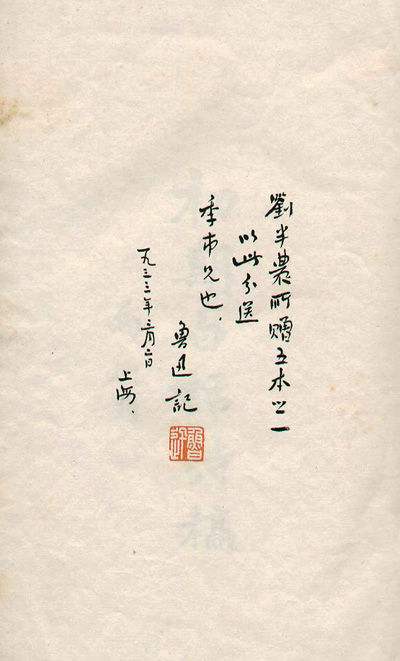 劉半農所贈五本之一
以此分送
季市兄也．
魯迅記
一九三三年三月二日
上海．
魯迅